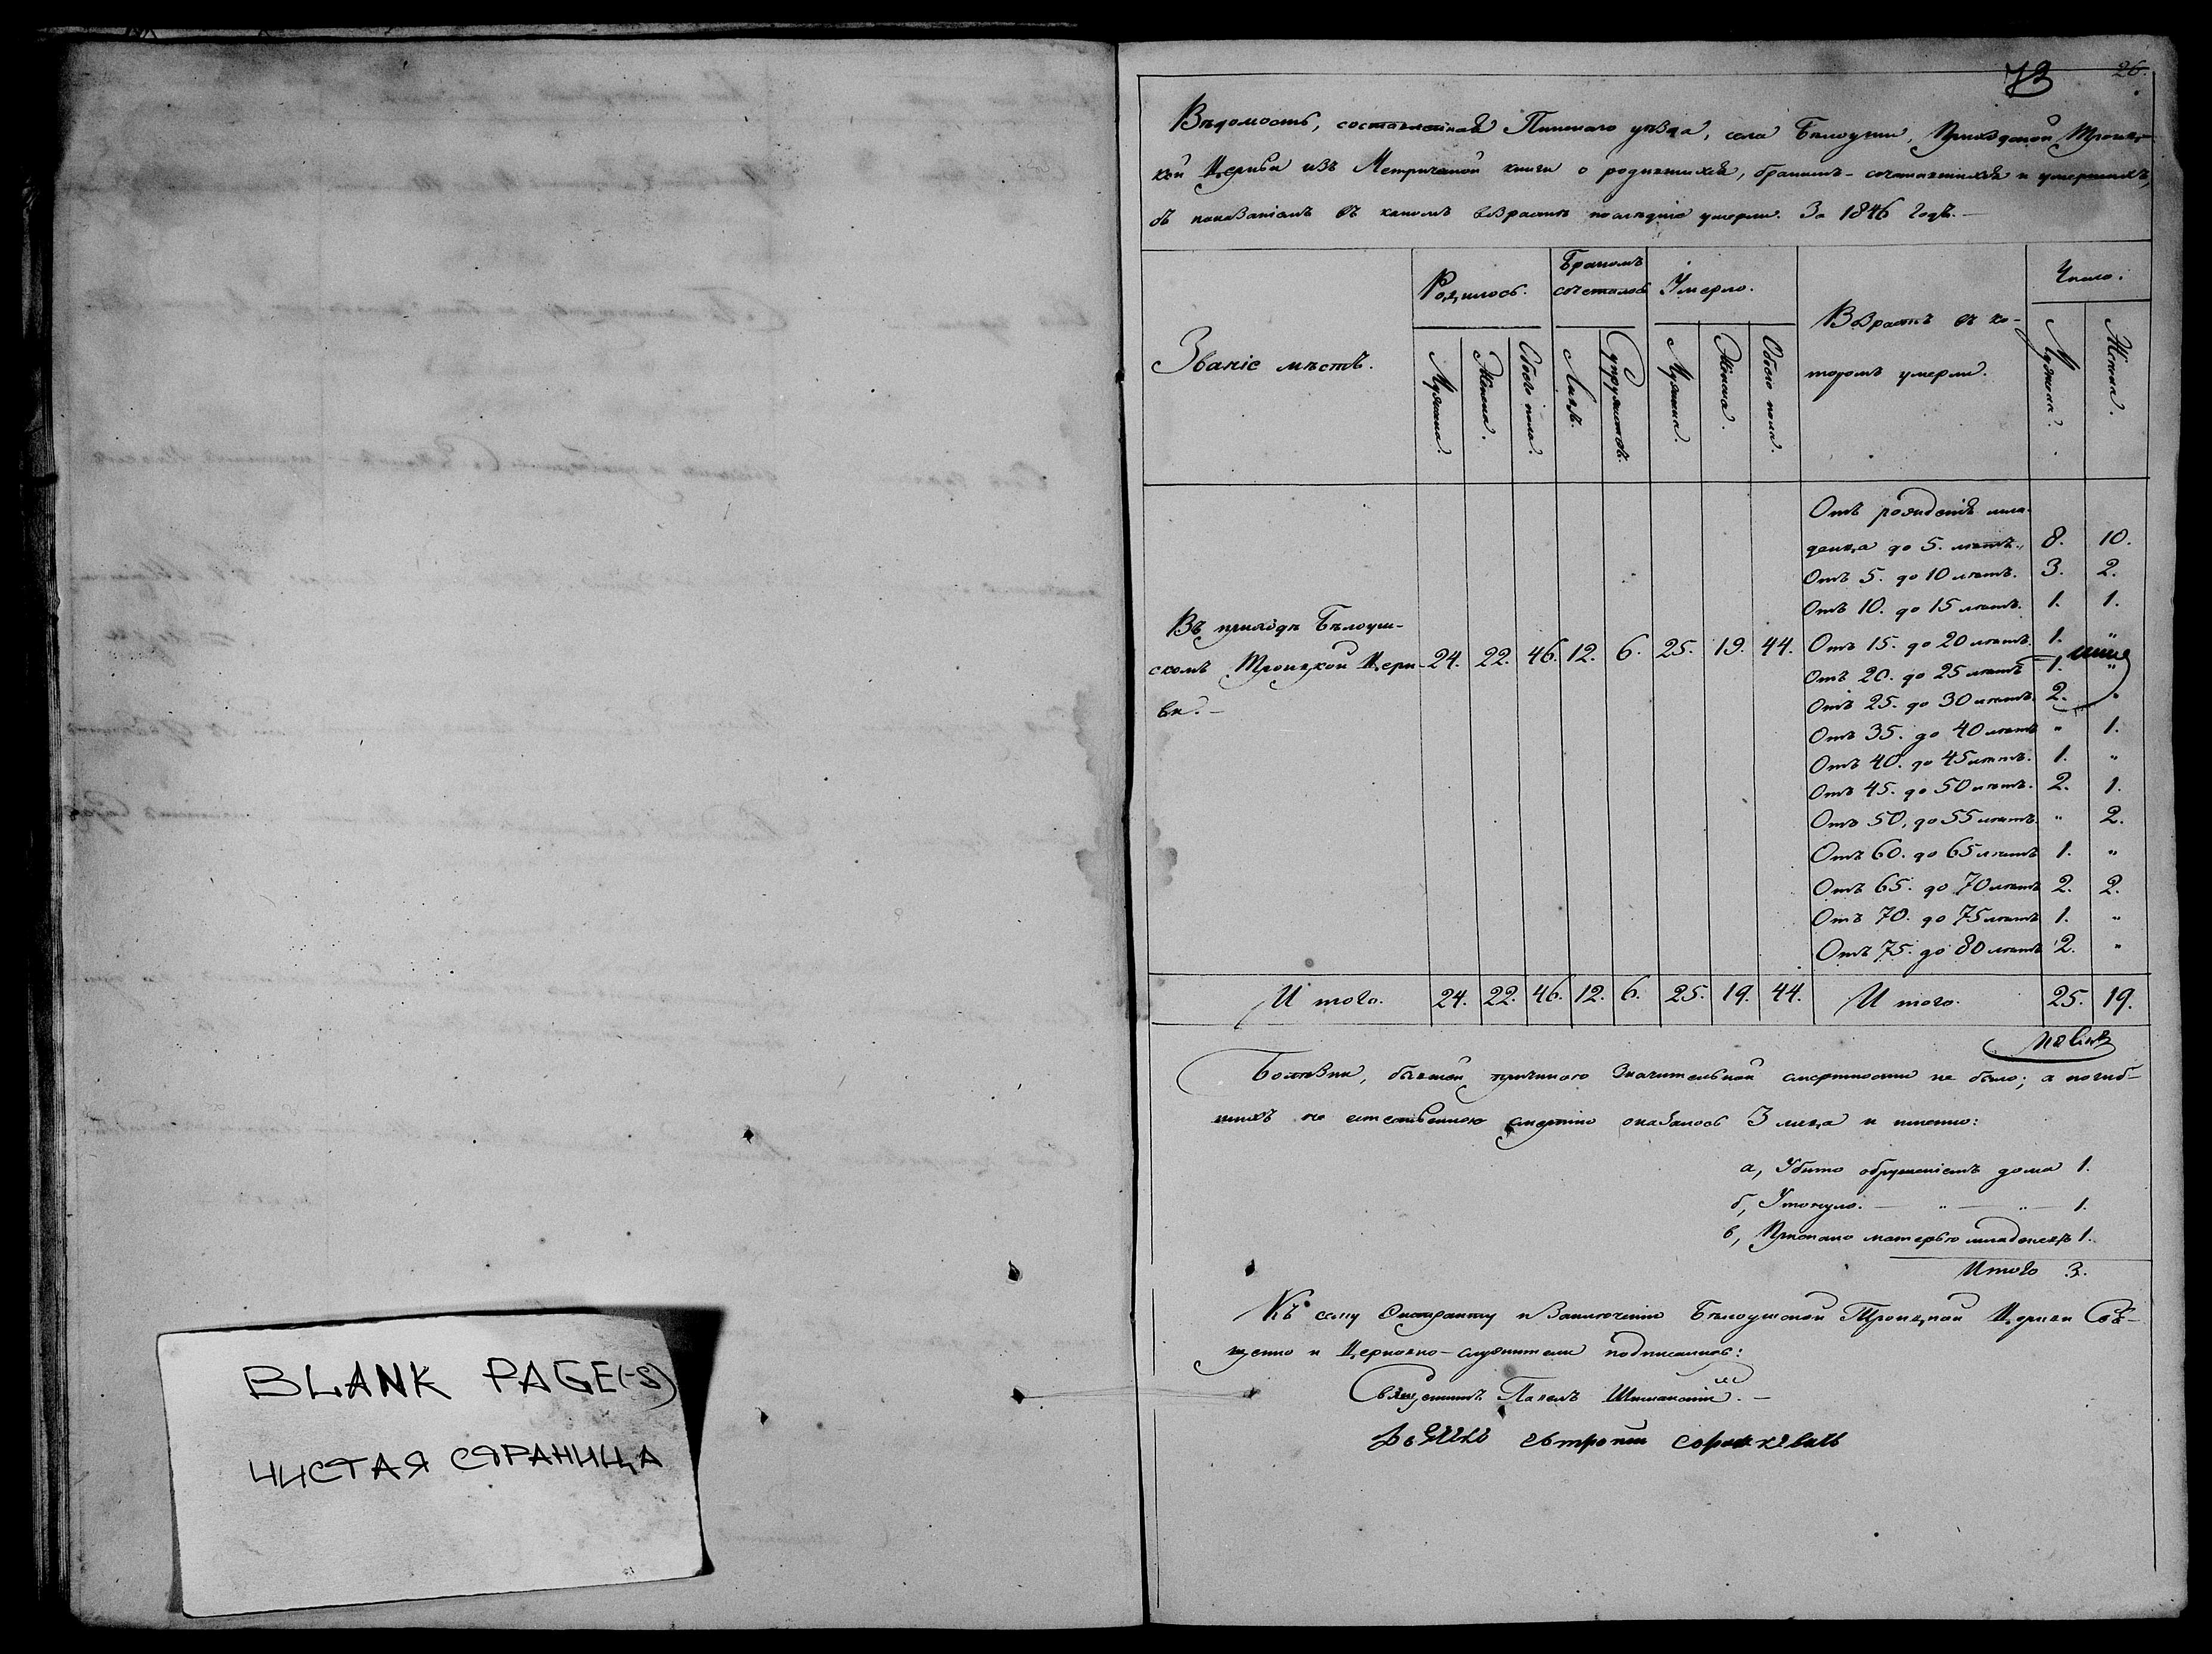 BLANK PAGE(-S)
ЧИСТАЯ СТРАНИЦА
26.
Вѣдомость, составленная Пинскаго уѣзда, села Бѣлоуши, Приходской Троиц-
кой Церкви изъ Метрической книги о родившихся, бракомъ-сочетавшихся и умершихъ,
съ показаніемъ въ какомъ возрастѣ послѣдніе умерли. За 1846 годъ.
Званіе мѣстъ.
Родилось.
Бракомъ сочеталось
Умерло.
Возрастъ въ ко-
торомъ умерли.
Число.
Мужска.
Женска.
Обоего пола.
Лицъ.
Супружествъ.
Мужска.
Женска.
Обоего пола.
Мужска.
Женска.
Въ приходѣ Бѣлоуш-
скомъ Троицкой Церк-
ви.
24. 22. 46. 12. 6. 25. 19. 44.
Отъ рожденія мла-
денца до 5. лѣтъ. 8. 10.
Отъ 5. до 10 лѣтъ. 3. 2.
Отъ 10. до 15 лѣтъ. 1. 1.
Отъ 15. до 20 лѣтъ. 1. "
Отъ 20. до 25 лѣтъ 1. "
Отъ 25. до 30 лѣтъ. 2. "
Отъ 35. до 40 лѣтъ " 1.
Отъ 40. до 45 лѣтъ. 1. "
Отъ 45. до 50 лѣтъ. 2. 1.
Отъ 50. до 55 лѣтъ. " 2.
Отъ 60. до 65 лѣтъ 1. "
Отъ 65. до 70 лѣтъ 2. 2.
Отъ 70. до 75 лѣтъ 1. "
Отъ 75. до 80 лѣтъ 2. "
И того. 24. 22. 46. 12. 6. 25. 19. 44. И того. 25. 19.
Болѣзни, бывшей причиною значительной смертности не было; а погиб-
шихъ не естественною смертію оказалось 3 лица и именно:
а, Убито обрушеніемъ дома 1.
б, Утонуло. — " — " — 1.
в, Приспано матерью младенецъ 1.
Итого 3.
Къ сему Экстракту и Заключенію Бѣлоушской Троицкой Церкви Свя-
щенно и Церковно-служители подписались:
Священникъ Павелъ